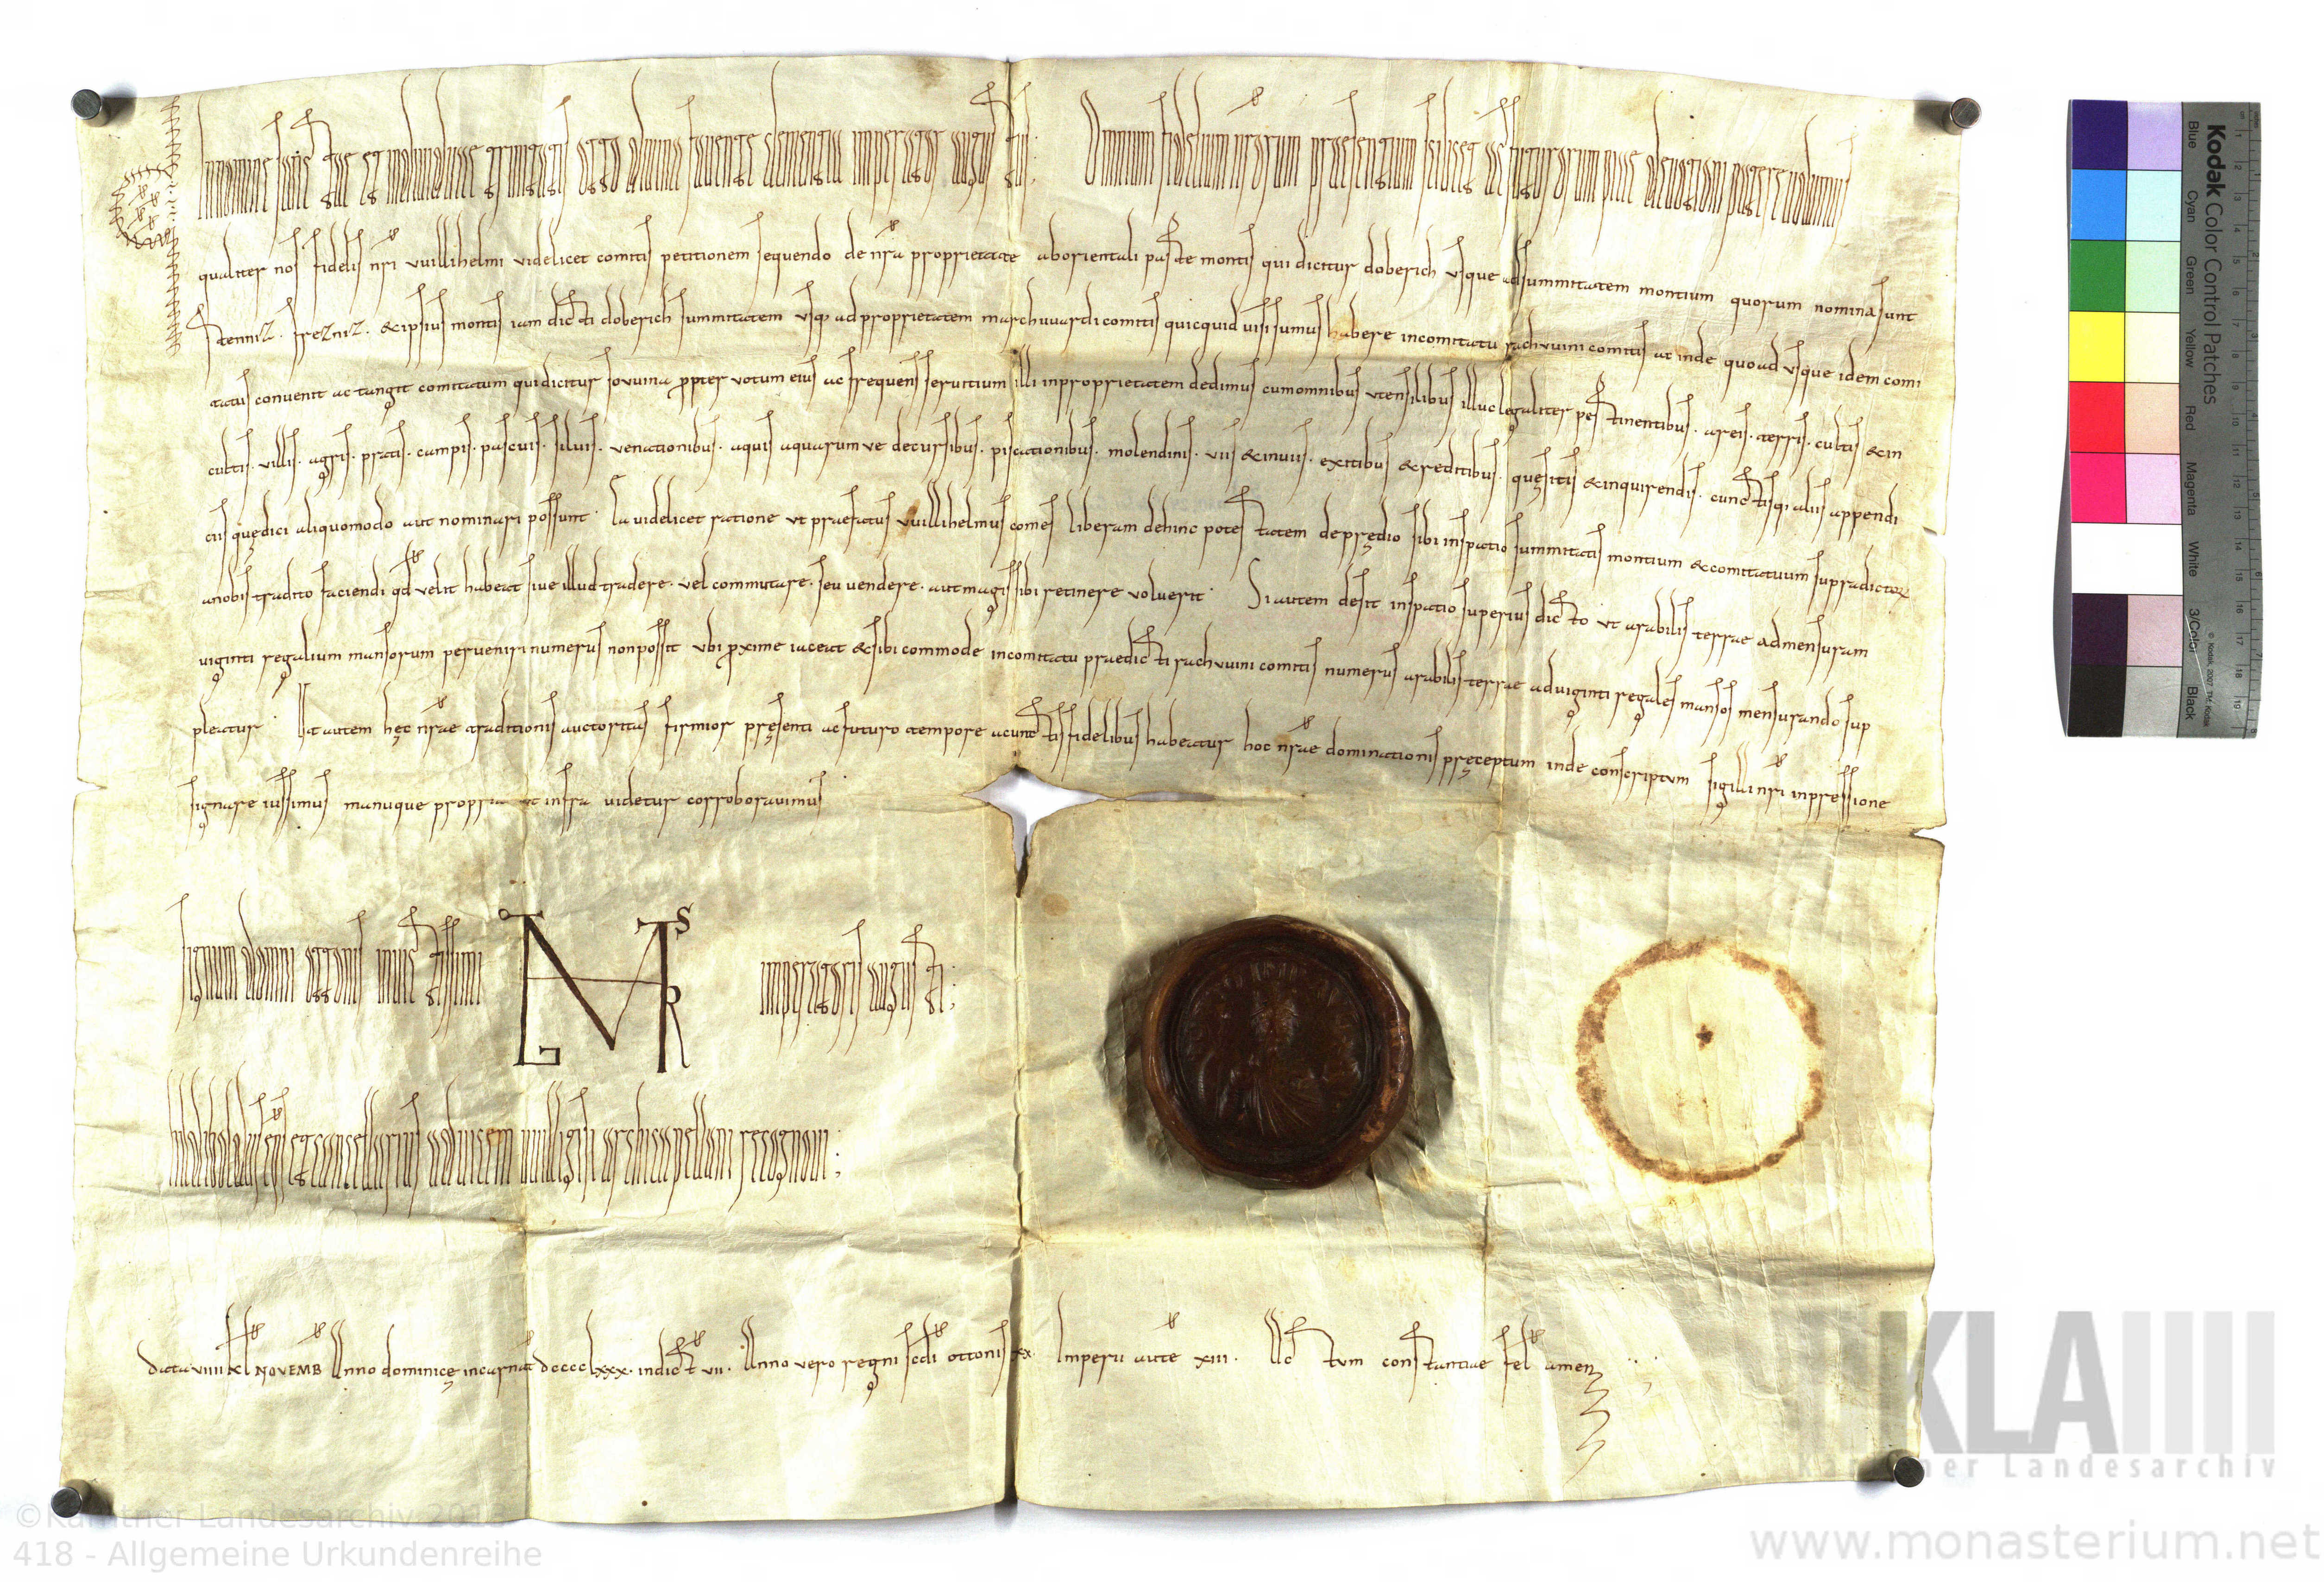 In nomine sanctę et individuę trinitatis otto divina favente clementia imperator augustus; Omnium fidelium nrorum praesentium scilicet ac futurorum pie devotioni patere volumus
qualiter nos fidelis nri vuillihelmi videlicet comitis petitionem sequendo de nra proprietate ab orientali parte montis qui dicitur doberich usque ad summitatem montium quorum nomina sunt
stenniz. frezniz. & ipsius montis iam dicti doberich summitatem usq; ad proprietatem marchuuardi comitis quicquid visi sumus habere in comitatu rachvuini comitis at inde quoad usque idem comi
tatus convenit ac tangit comitatum qui dicitur souuina propter votum eius ac frequens servitium illi in proprietatem dedimus cum omnibus utensilibus illuc legaliter pertinentibus. areis. terris. cultis & in
cultis. villis. agris. pratis. campis. pascuis. silvis. venationibus. aquis aquarumve decursibus. piscationibus. molendinis. viis & inviis. exitibus & reditibus. quęsitis & inquirendis. cunctisq; aliis appendi
ciis quę dici aliquomodo aut nominari possunt. Ea videlicet ratione ut praefatus vuillihelmus comes liberam dehinc potestatem de prędio sibi in spatio summitatis montium & comitatuum supradictor
a nobis tradito faciendi qd velit habeat sive illud tradere. vel commutare. seu vendere. aut magis sibi retinere voluerit. Si autem desit in spatio superius dicto ut arabilis terrae ad mensuram
viginti regalium mansorum perveniri numerus non possit. ubi proxime iaceat & sibi commode in comitatu praedicti rachvuini comitis numerus arabilis terrae ad viginti regales mansos mensurando sup
pleatur. At autem hęc nrae traditionis auctoritas firmior pręsenti ac futuro tempore a cunctis fidelibus habeatur hoc nrae dominationis pręceptum inde conscriptum sigilli nri inpressione
signare iussimus manuque propria ut infra videtur corroboravimus
Signum domni ottonis invictissimi imperatoris augusti;
Hildiboldus eps et cancellarius advicem vuilligisi archicapellani recognovi;
Data viiii kl NOVEMB Anno dominicę incarnat dcccclxxx. indict vii. Anno vero regni scdi ottonis xx. Imperii aute xiii. Actum constantiae fel amen
Kodak Color Control Patches
Blue Cyan Green Yellow Red Magenta White 3/Color Black
© Kodak, 2007 TM: Kodak
KLA
Kärntner Landesarchiv
©Kärntner Landesarchiv 2013
418 - Allgemeine Urkundenreihe
www.monasterium.net